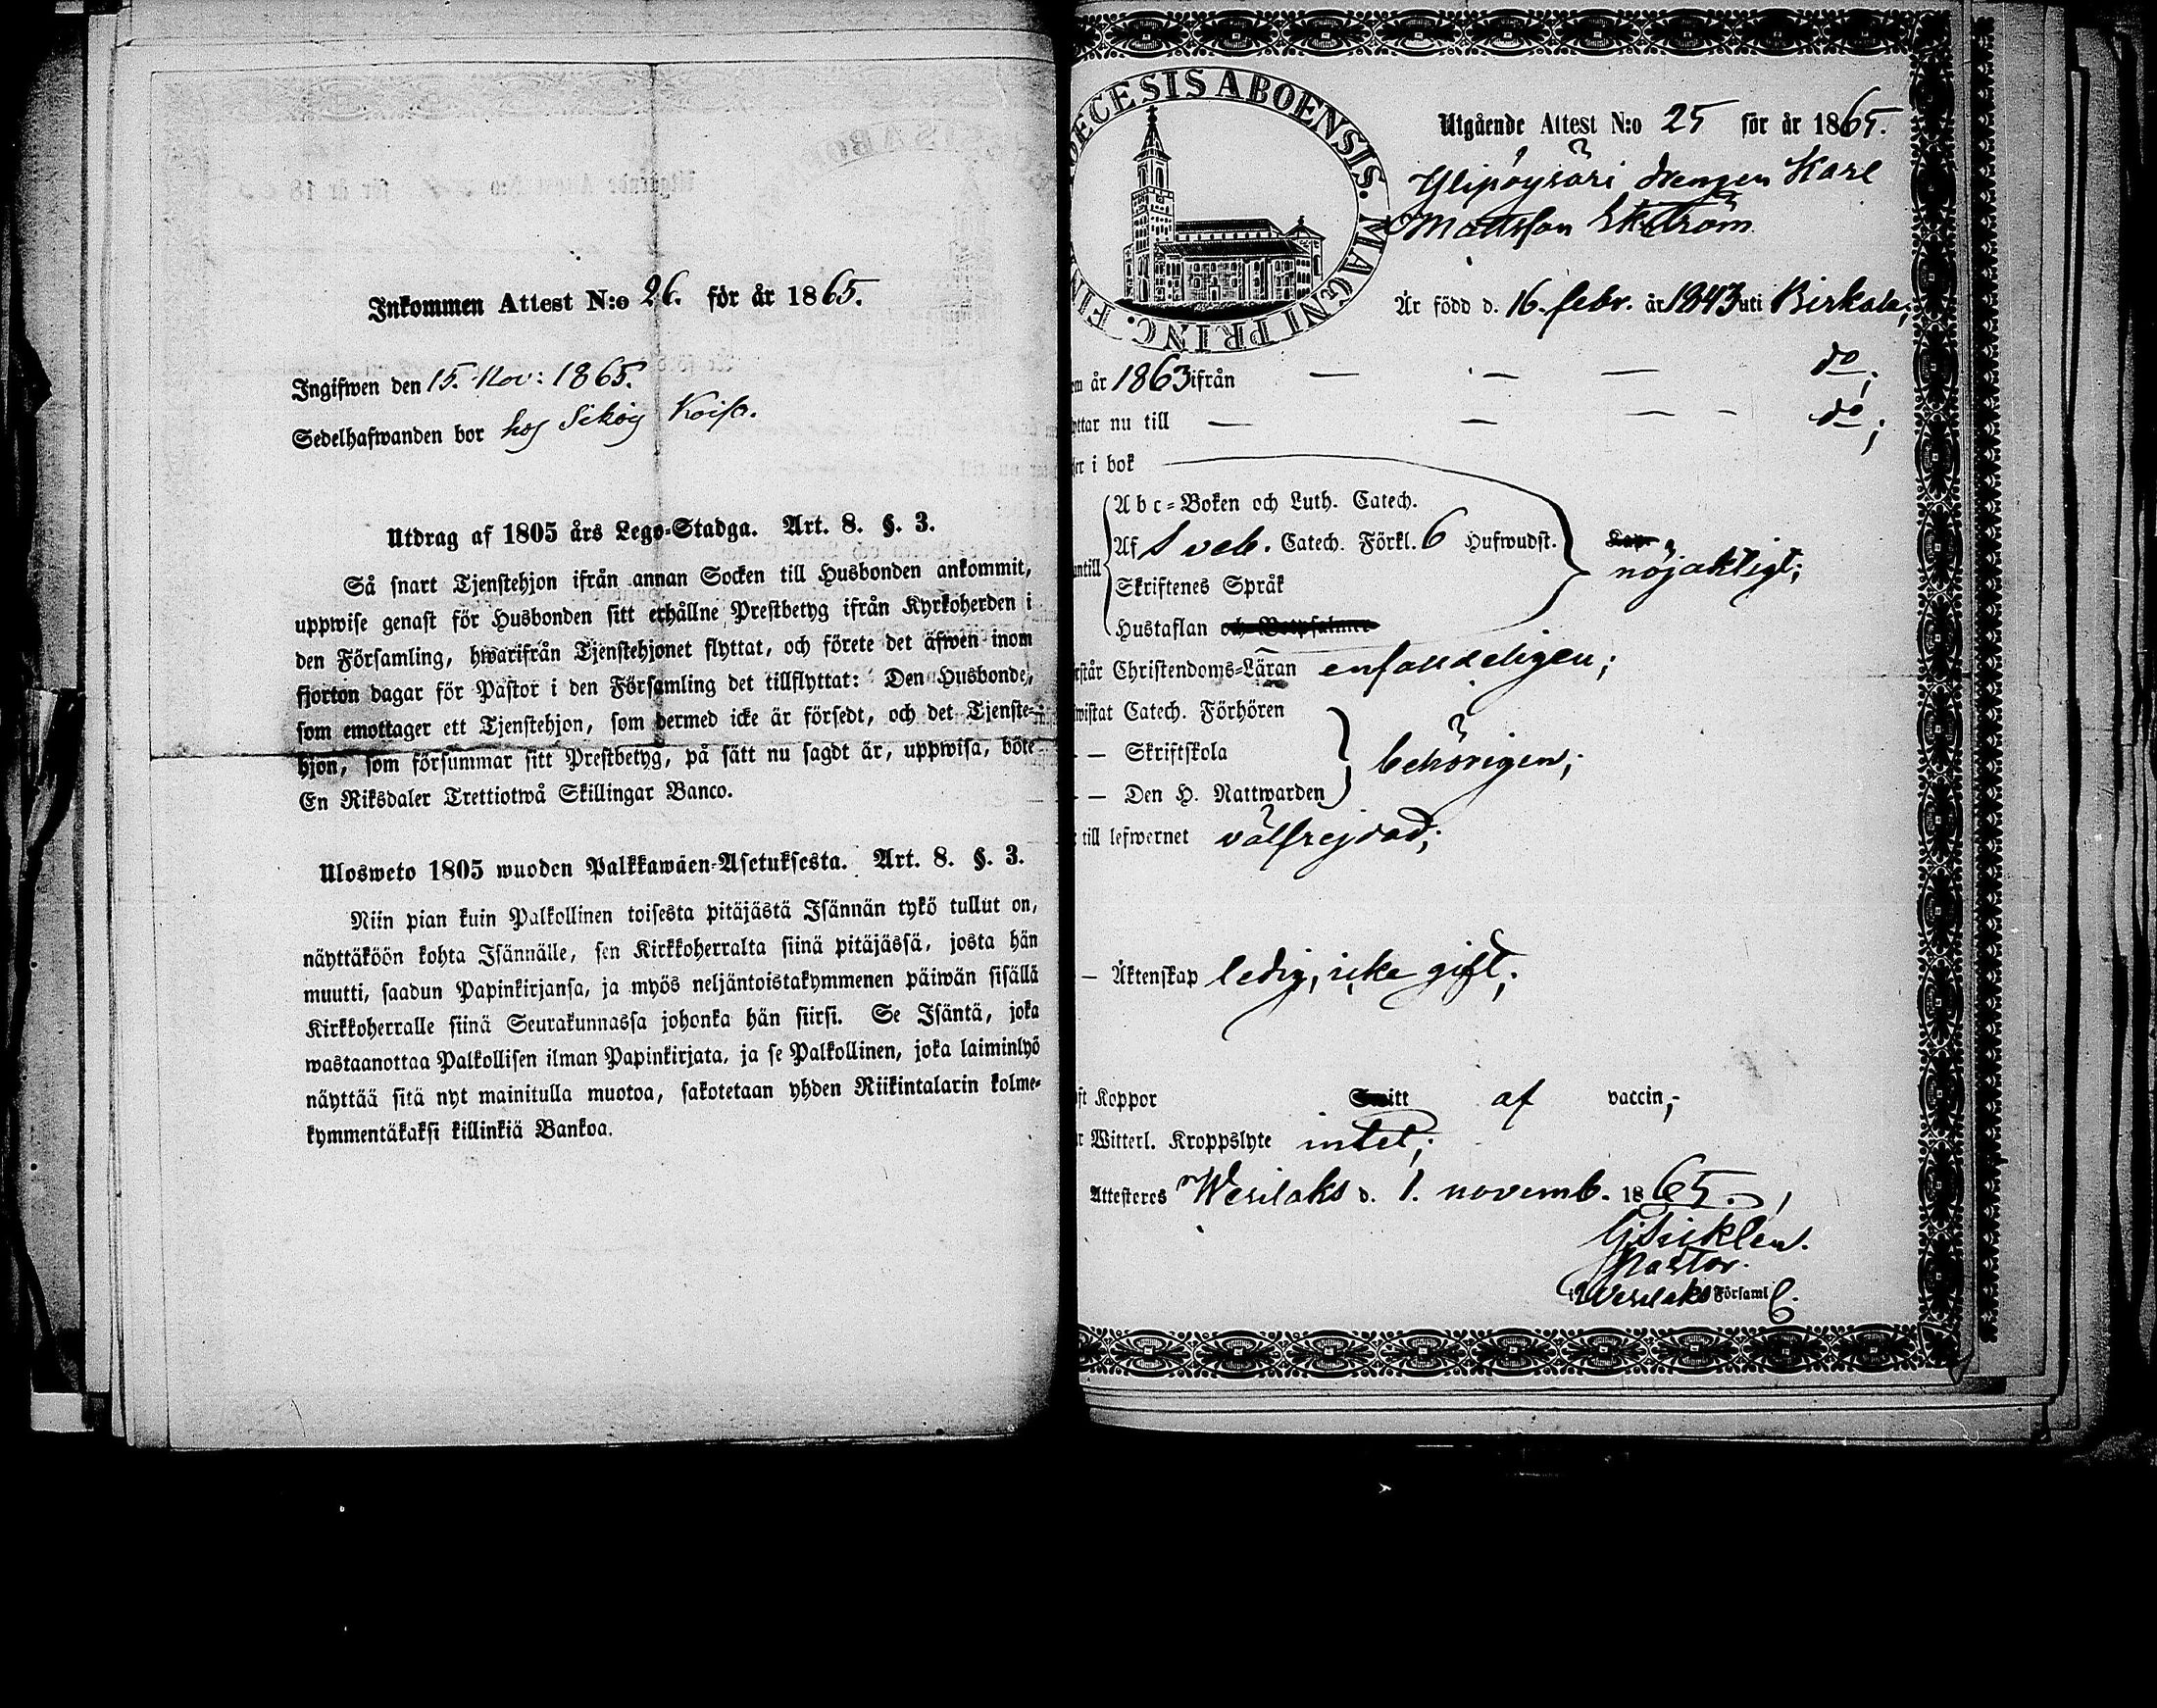 Inkommen Attest N:o 26. för år 1865.
Ingifwen den 15. Nov: 1865.
Sedelhafwanden bor hos
Utdrag af 1805 års Lego-Stadga. Art. 8. §. 3.
Så snart Tjenstehjon ifrån annan Socken till Husbonden ankommit,
uppwise genast för Husbonden sitt erhållne Prestbetyg ifrån Kyrkoherden i
den Församling, hwarifrån Tjenstehjonet flyttat, och förete det äfwen inom
fjorton dagar för Pastor i den Församling det tillflyttat: Den Husbonde,
som emottager ett Tjenstehjon, som dermed icke är försedt, och det Tjenste-
hjon, som försummar sitt Prestbetyg, på sätt nu sagdt är, uppwisa, böte
En Riksdaler Trettiotwå Skillingar Banco.
Ulosweto 1805 wuoden Palkkawäen-Asetuksesta. Art. 8. §. 3.
Niin pian kuin Palkollinen toisesta pitäjästä Isännän tykö tullut on,
näyttäköön kohta Isännälle, sen Kirkkoherralta siinä pitäjässä, josta hän
muutti, saadun Papinkirjansa, ja myös neljäntoistakymmenen päiwän sisällä
Kirkkoherralle siinä Seurakunnassa johonka hän siirsi. Se Isäntä, joka
wastaanottaa Palkollisen ilman Papinkirjata, ja se Palkollinen, joka laiminlyö
näyttää sitä nyt mainitulla muotoa, sakotetaan yhden Riikintalarin kolme-
kymmentäkaksi killinkiä Bankoa.
ECESIS ABOENSIS. MAGNI PRINC. FIN
Utgående Attest N:o 25 för år 1865.
Ylipöysäri drengen Karl
Mattsson Ekström
Är född d. 16. febr. år 1843 uti Birkala;
år 1863 ifrån — — — do;
ttar nu till — — — - do;
i bok
Abc-Boken och Luth. Catech.
Af Sveb. Catech. Förkl. 6 Hufwudst.
nöjaktigt;
Skriftenes Språk
Hustaflan
står Christendoms-Läran enfaldeligen;
wistat Catech. Förhören
— Skriftskola
behörigen;
— Den H. Nattwarden
till lefwernet välfrejdad;
— Äktenskap ledig, icke gift;
ft Koppor af vaccin;
Witterl. Kroppslyte intet;
Attesteres Wesilaks d. 1. novemb. 1865.
Pastor.
i Wesilaks Församl